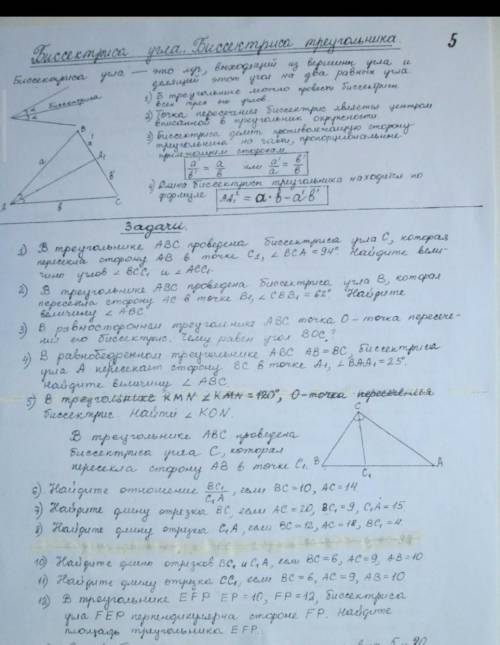 5
Биссектриса угла. Биссектриса треугольника.
Биссектриса угла — это луч, выходящий из вершины угла и
делящий этот угол на два равных угла
биссектриса
1) В треугольнике можно провести биссектрисы
всех трёх его углов.
2) Точка пересечения биссектрис является центром
вписанной в треугольник окружности.
3) Биссектриса делит противолежащую сторону
треугольника на части, пропорциональные
прилежащим сторонам
a'/b' = a/b или a'/a = b'/b
4) Длина биссектрисы треугольника находится по
формуле AA₁² = a·b − a'b'
B a' A₁ a b' A b C
Задачи.
1) В треугольнике ABC проведена биссектриса угла C, которая
пересекла сторону AB в точке C₁, ∠BCA = 94°. Найдите вели-
чину углов ∠BCC₁ и ∠ACC₁.
2) В треугольнике ABC проведена биссектриса угла B, которая
пересекла сторону AC в точке B₁, ∠CBB₁ = 62°. Найдите
величину ∠ABC
3) В равностороннем треугольнике ABC точка O – точка пересече-
ния его биссектрис. Чему равен угол BOC?
4) В равнобедренном треугольнике ABC AB = BC, биссектриса
угла A пересекает сторону BC в точке A₁, ∠BAA₁ = 25°
Найдите величину ∠ABC.
5) В треугольнике KMN ∠KMN = 120°, O-точка пересечения
биссектрис. Найти ∠KON.
В треугольнике ABC проведена
биссектриса угла C, которая
пересекла сторону AB в точке C₁.
C B C₁ A
6) Найдите отношение BC₁/C₁A, если BC = 10, AC = 14.
7) Найдите длину отрезка BC, если AC = 20, BC₁ = 9, C₁A = 15
8) Найдите длину отрезка C₁A, если BC = 12, AC = 18, BC₁ = 4.
10) Найдите длины отрезков BC₁ и C₁A, если BC = 6, AC = 9, AB = 10
11) Найдите длину отрезка CC₁, если BC = 6, AC = 9, AB = 10
12) В треугольнике EFP EP = 10, FP = 12, биссектриса
угла FEP перпендикулярна стороне FP. Найдите
площадь треугольника EFP.